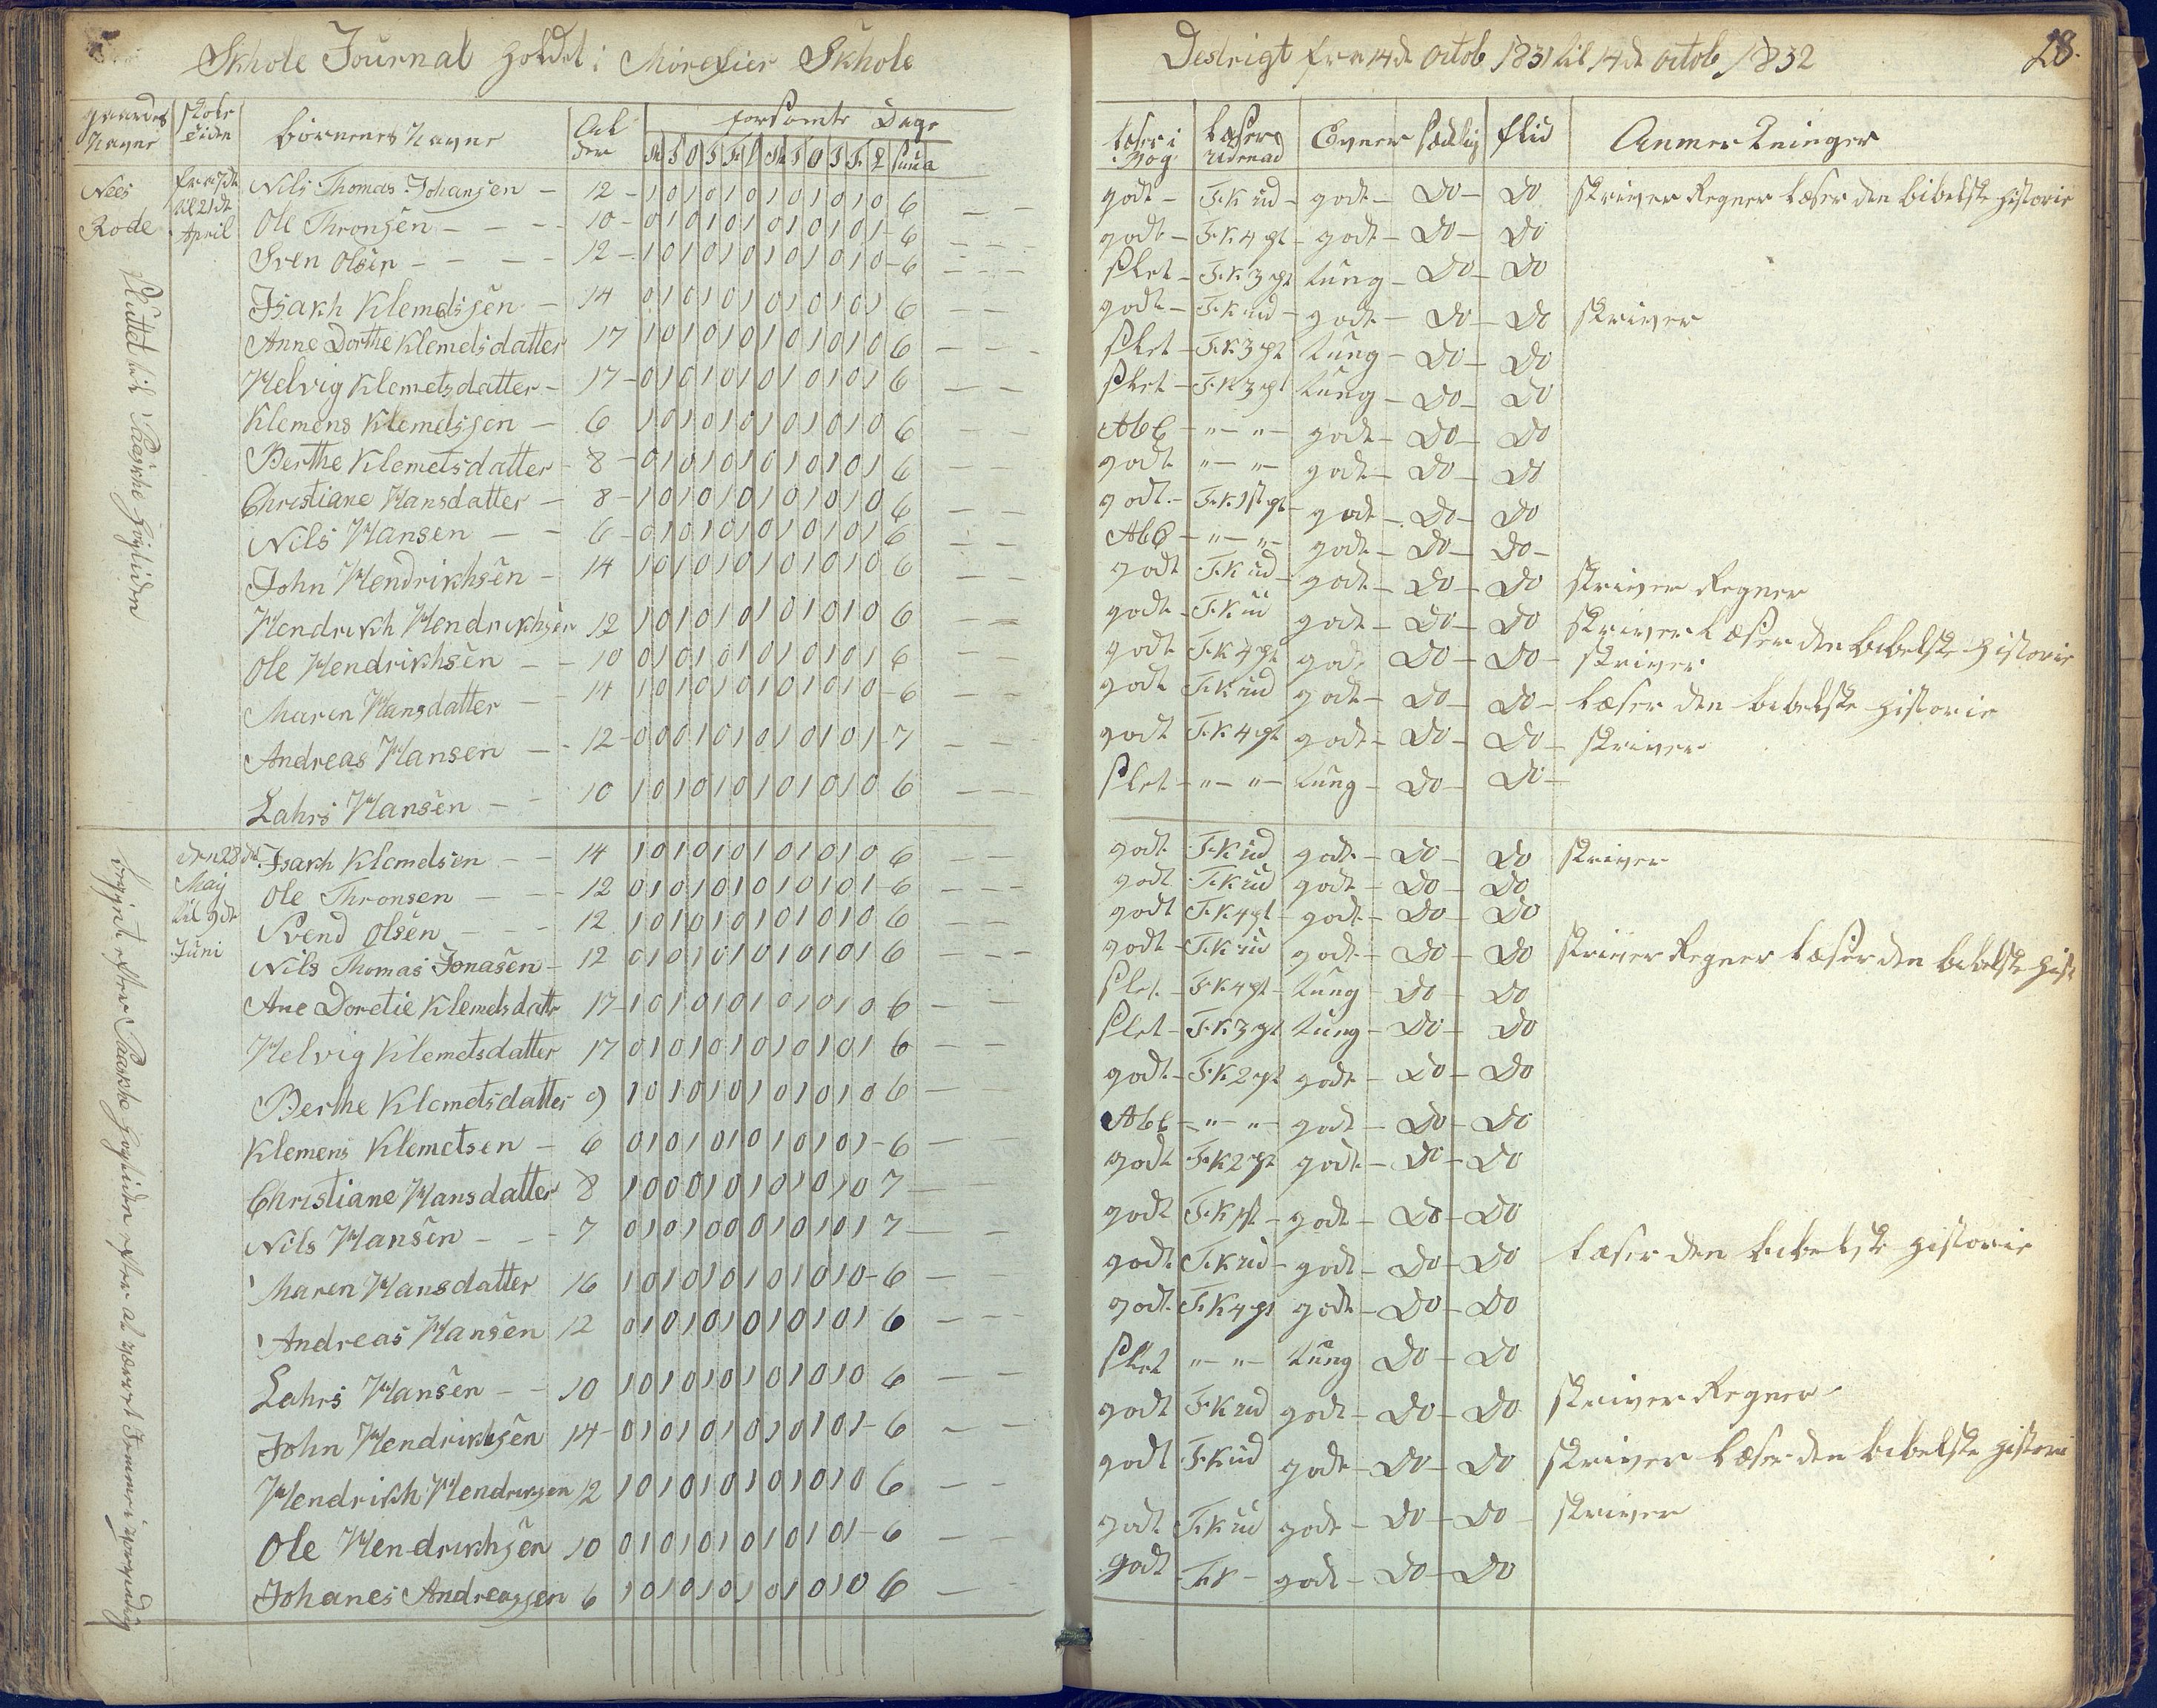 Skhole Journal holdet i Morefier Skhole Destrigt fra 14de octob 1831 til 14de octob 1832
28.
gaardes Navne | Skole Tiden | Børnenes Navne | Alderen | forsømte Dage | læser i Bog | læser udenad | Evner | sædelig | flid | Anmerkninger
M T O T F L M T O T F L Suma
Nees Rode
fra 7de til 21de April
Nils Thomas Johansen – 12 – 1 0 1 0 1 0 1 0 1 0 1 0 6 godt – F.K ud – godt – Do – Do skriver Regner læser den bibelske historie
Ole Thronsen – – 10 – 0 1 0 1 0 1 0 1 0 1 0 1 – 6 godt – F.K 4 pt – godt – Do – Do
Sven Olsen – – – 12 – 1 0 1 0 1 0 1 0 1 0 1 0 – 6 slet – F.K. 3 pt tung – Do – Do
Isakh Klemetsen – 14 0 1 0 1 0 1 0 1 0 1 0 1 6 godt – F.K ud – godt – Do – Do skriver
Anne Dorthe Klemetsdatter 17 1 0 1 0 1 0 1 0 1 0 1 0 6 slet – F.K 3 pt tung – Do – Do
Helvig Klemetsdatter – 17 – 0 1 0 1 0 1 0 1 0 1 0 1 6 slet – F.K 3 pt tung – Do – Do
Klemens Klemetsen – 6 1 0 1 0 1 0 1 0 1 0 1 0 6 AbC – " – " – godt – Do – Do
Berthe Klemetsdatter – 8 – 0 1 0 1 0 1 0 1 0 1 0 1 6 godt " – " – godt – Do – Do
Christiane Hansdatter – 8 – 1 0 1 0 1 0 1 0 1 0 1 0 6 godt – F.K 1st pt – godt – Do – Do
Nils Hansen – – 6 – 0 1 0 1 0 1 0 1 0 1 0 1 6 AbC – " – " – godt – Do – Do –
John Hendrikhsen – 14 1 0 1 0 1 0 1 0 1 0 1 0 6 godt F.K ud – godt – Do – Do skriver Regner
Hendrikh Hendrikhsen 12 1 0 1 0 1 0 1 0 1 0 1 0 6 godt – F.K ud godt – Do – Do skriver læser den bibelske historie
Ole Hendrikhsen – – 10 0 1 0 1 0 1 0 1 0 1 0 1 6 godt F.K 4 pt godt Do – Do – skriver
Maren Hansdatter – 14 1 0 1 0 1 0 1 0 1 0 1 0 – 6 godt F.K ud godt – Do – Do – læser den bibelske historie
Andreas Hansen – – 12 – 0 0 0 1 0 1 0 1 0 1 0 1 – 7 godt F.K 4 pt godt – Do – Do – skriver
Lahrs Hansen – – 10 1 0 1 0 1 0 1 0 1 0 1 0 6 slet – " – " – tung – Do – Do –
den 28de Maij til 9de Juni
Isakh Klemetsen – – 14 1 0 1 0 1 0 1 0 1 0 1 0 6 godt F.K ud godt – Do – Do skriver
Ole Thronsen – – 12 0 1 0 1 0 1 0 1 0 1 0 1 – 6 godt F.K ud godt – Do – Do
Svend Olsen – – – 12 1 0 1 0 1 0 1 0 1 0 1 0 6 godt F.K 4 pt – godt – Do – Do
Nils Thomas Jonasen – 12 0 1 0 1 0 1 0 1 0 1 0 1 6 godt – F.K ud godt – Do – Do skriver Regner læser den bibelske hist
Ane Doretie Klemetsdatt 17 – 1 0 1 0 1 0 1 0 1 0 1 0 6 slet – F.K 4 pt – tung – Do – Do
Helvig Klemetsdatter 17 0 1 0 1 0 1 0 1 0 1 0 1 6 slet – F.K 3 pt tung – Do – Do
Berthe Klemetsdatter 9 1 0 1 0 1 0 1 0 1 0 1 0 6 godt – F.K 2 pt godt – Do – Do
Klemens Klemetsen – 6 0 1 0 1 0 1 0 1 0 1 0 1 – 6 AbC – " – " – godt – Do – Do
Christiane Hansdatter 8 1 0 0 0 1 0 1 0 1 0 1 0 7 godt F.K 2 pt godt – Do – Do
Nils Hansen – – 7 0 1 0 1 0 0 0 1 0 1 0 1 7 godt F.K pt – godt – Do – Do
Maren Hansdatter 16 1 0 1 0 1 0 1 0 1 0 1 0 – 6 godt F.K ud – godt – Do – Do læser den bibelske historie
Andreas Hansen 12 0 1 0 1 0 1 0 1 0 1 0 1 6 godt F.K 4 pt godt – Do – Do
Lahrs Hansen – – 10 1 0 1 0 1 0 1 0 1 0 1 0 6 slet " – " – tung Do – Do
John Hendrikhsen 14 – 0 1 0 1 0 1 0 1 0 1 0 1 – 6 godt F.K ud godt – Do – Do skriver Regner
Hendrikh Hendriksen 12 1 0 1 0 1 0 1 0 1 0 1 0 6 godt F.K ud godt – Do – Do skriver læser den bibelske histori
Ole Hendrikhsen 10 0 1 0 1 0 1 0 1 0 1 0 1 – 6 godt F.K ud godt – Do – Do – skriver
Johanes Andreasen 6 1 0 1 0 1 0 1 0 1 0 1 0 6 godt F.K – godt – Do – Do
Sluttet til Paaskhe Høytiden
begynt efter Paaskhe Høytiden efter at været